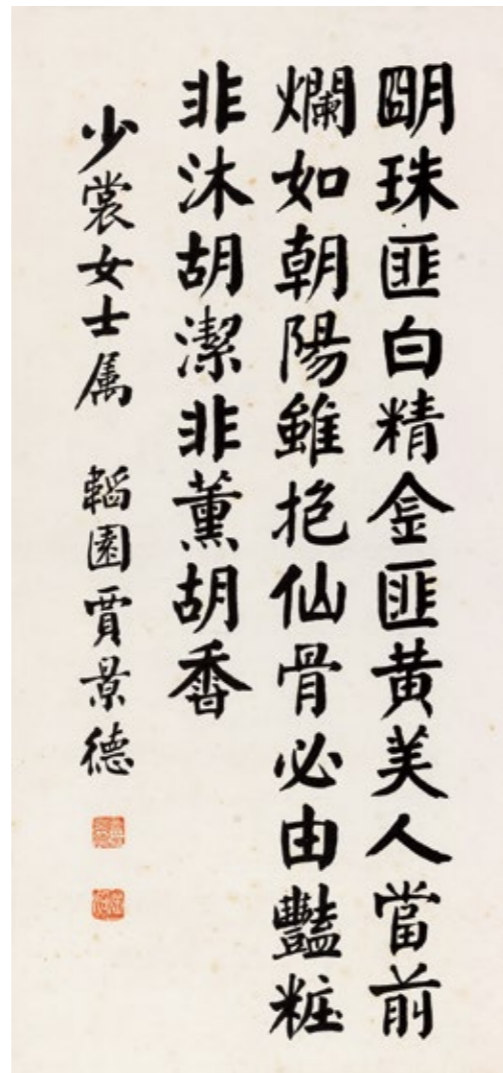 明珠匪白精金匪黃美人當前
爛如朝陽雖抱仙骨必由豔粧
非沐胡潔非薰胡香
少裳女士属 韜園賈景德